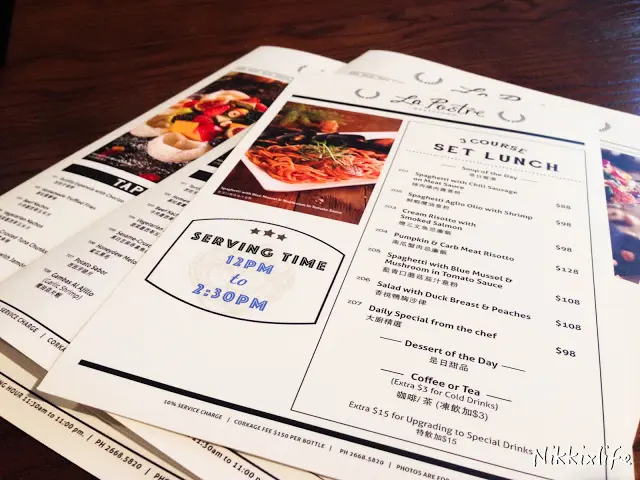 La Pastre
3 COURSE
SET LUNCH
Soup of the Day
是日餐湯
201 Spaghetti with Chili Sausage
on Meat Sauce $88
202 Spaghetti Aglio Olio with Shrimp $98
鮮蝦欖油意粉
Cream Risotto with
Smoked Salmon $98
煙三文魚忌廉飯
204 Pumpkin & Carb Meat Risotto $128
南瓜蟹肉忌廉飯
205 Spaghetti with Blue Mussel &
Mushroom in Tomato Sauce $108
藍青口蘑菇茄汁意粉
206 Salad with Duck Breast & Peaches $108
香桃鴨胸沙律
207 Daily Special from the chef $98
大廚精選
Dessert of the Day
是日甜品
Coffee or Tea
(Extra $3 for Cold Drinks)
咖啡/ 茶 (凍飲加$3)
Extra $15 for Upgrading to Special Drinks
特飲加$15
Spaghetti with Blue Mussel & Mushroom in Tomato Sauce
SERVING TIME
12PM
to
2:30PM
10% SERVICE CHARGE | CORKAGE FEE $150 PER BOTTLE |
PH 2668.5820 | PHOTOS ARE FOR
TAP
Potato Sabor
Gambas Al Ajillo
(Garlic Shrimp)
SERVICE CHARGE | CORKAG
HOUR 11:30am to 11:00 pm. | PH 2668.5820
Nikkixlife